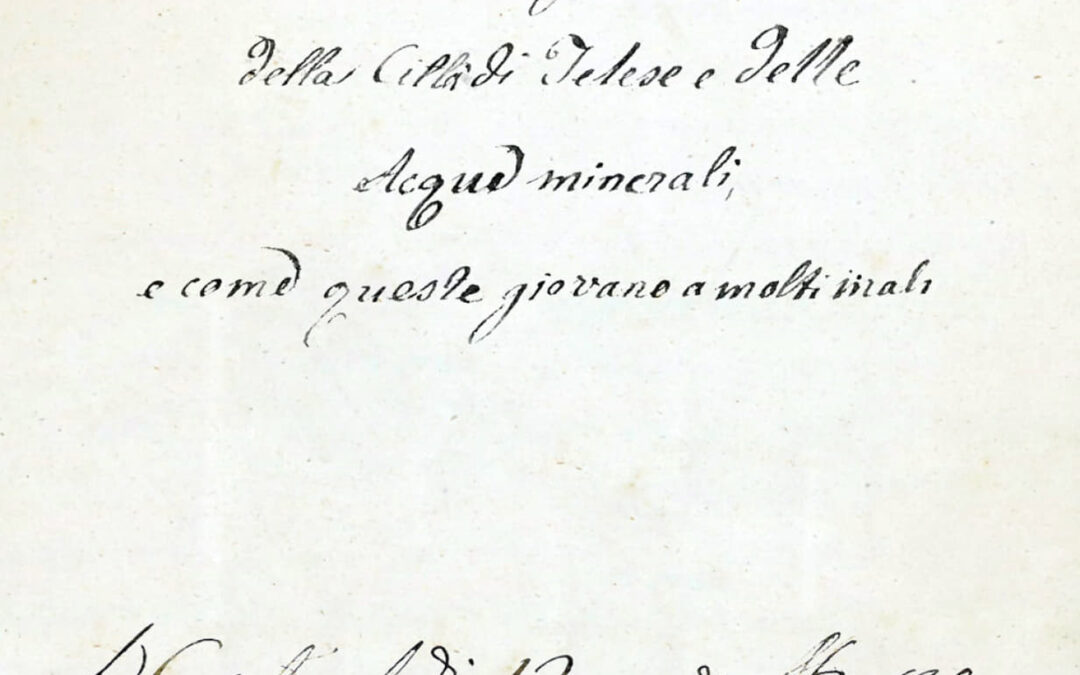 della Città di Telese e delle
Acque minerali,
e come queste giovano a molti mali